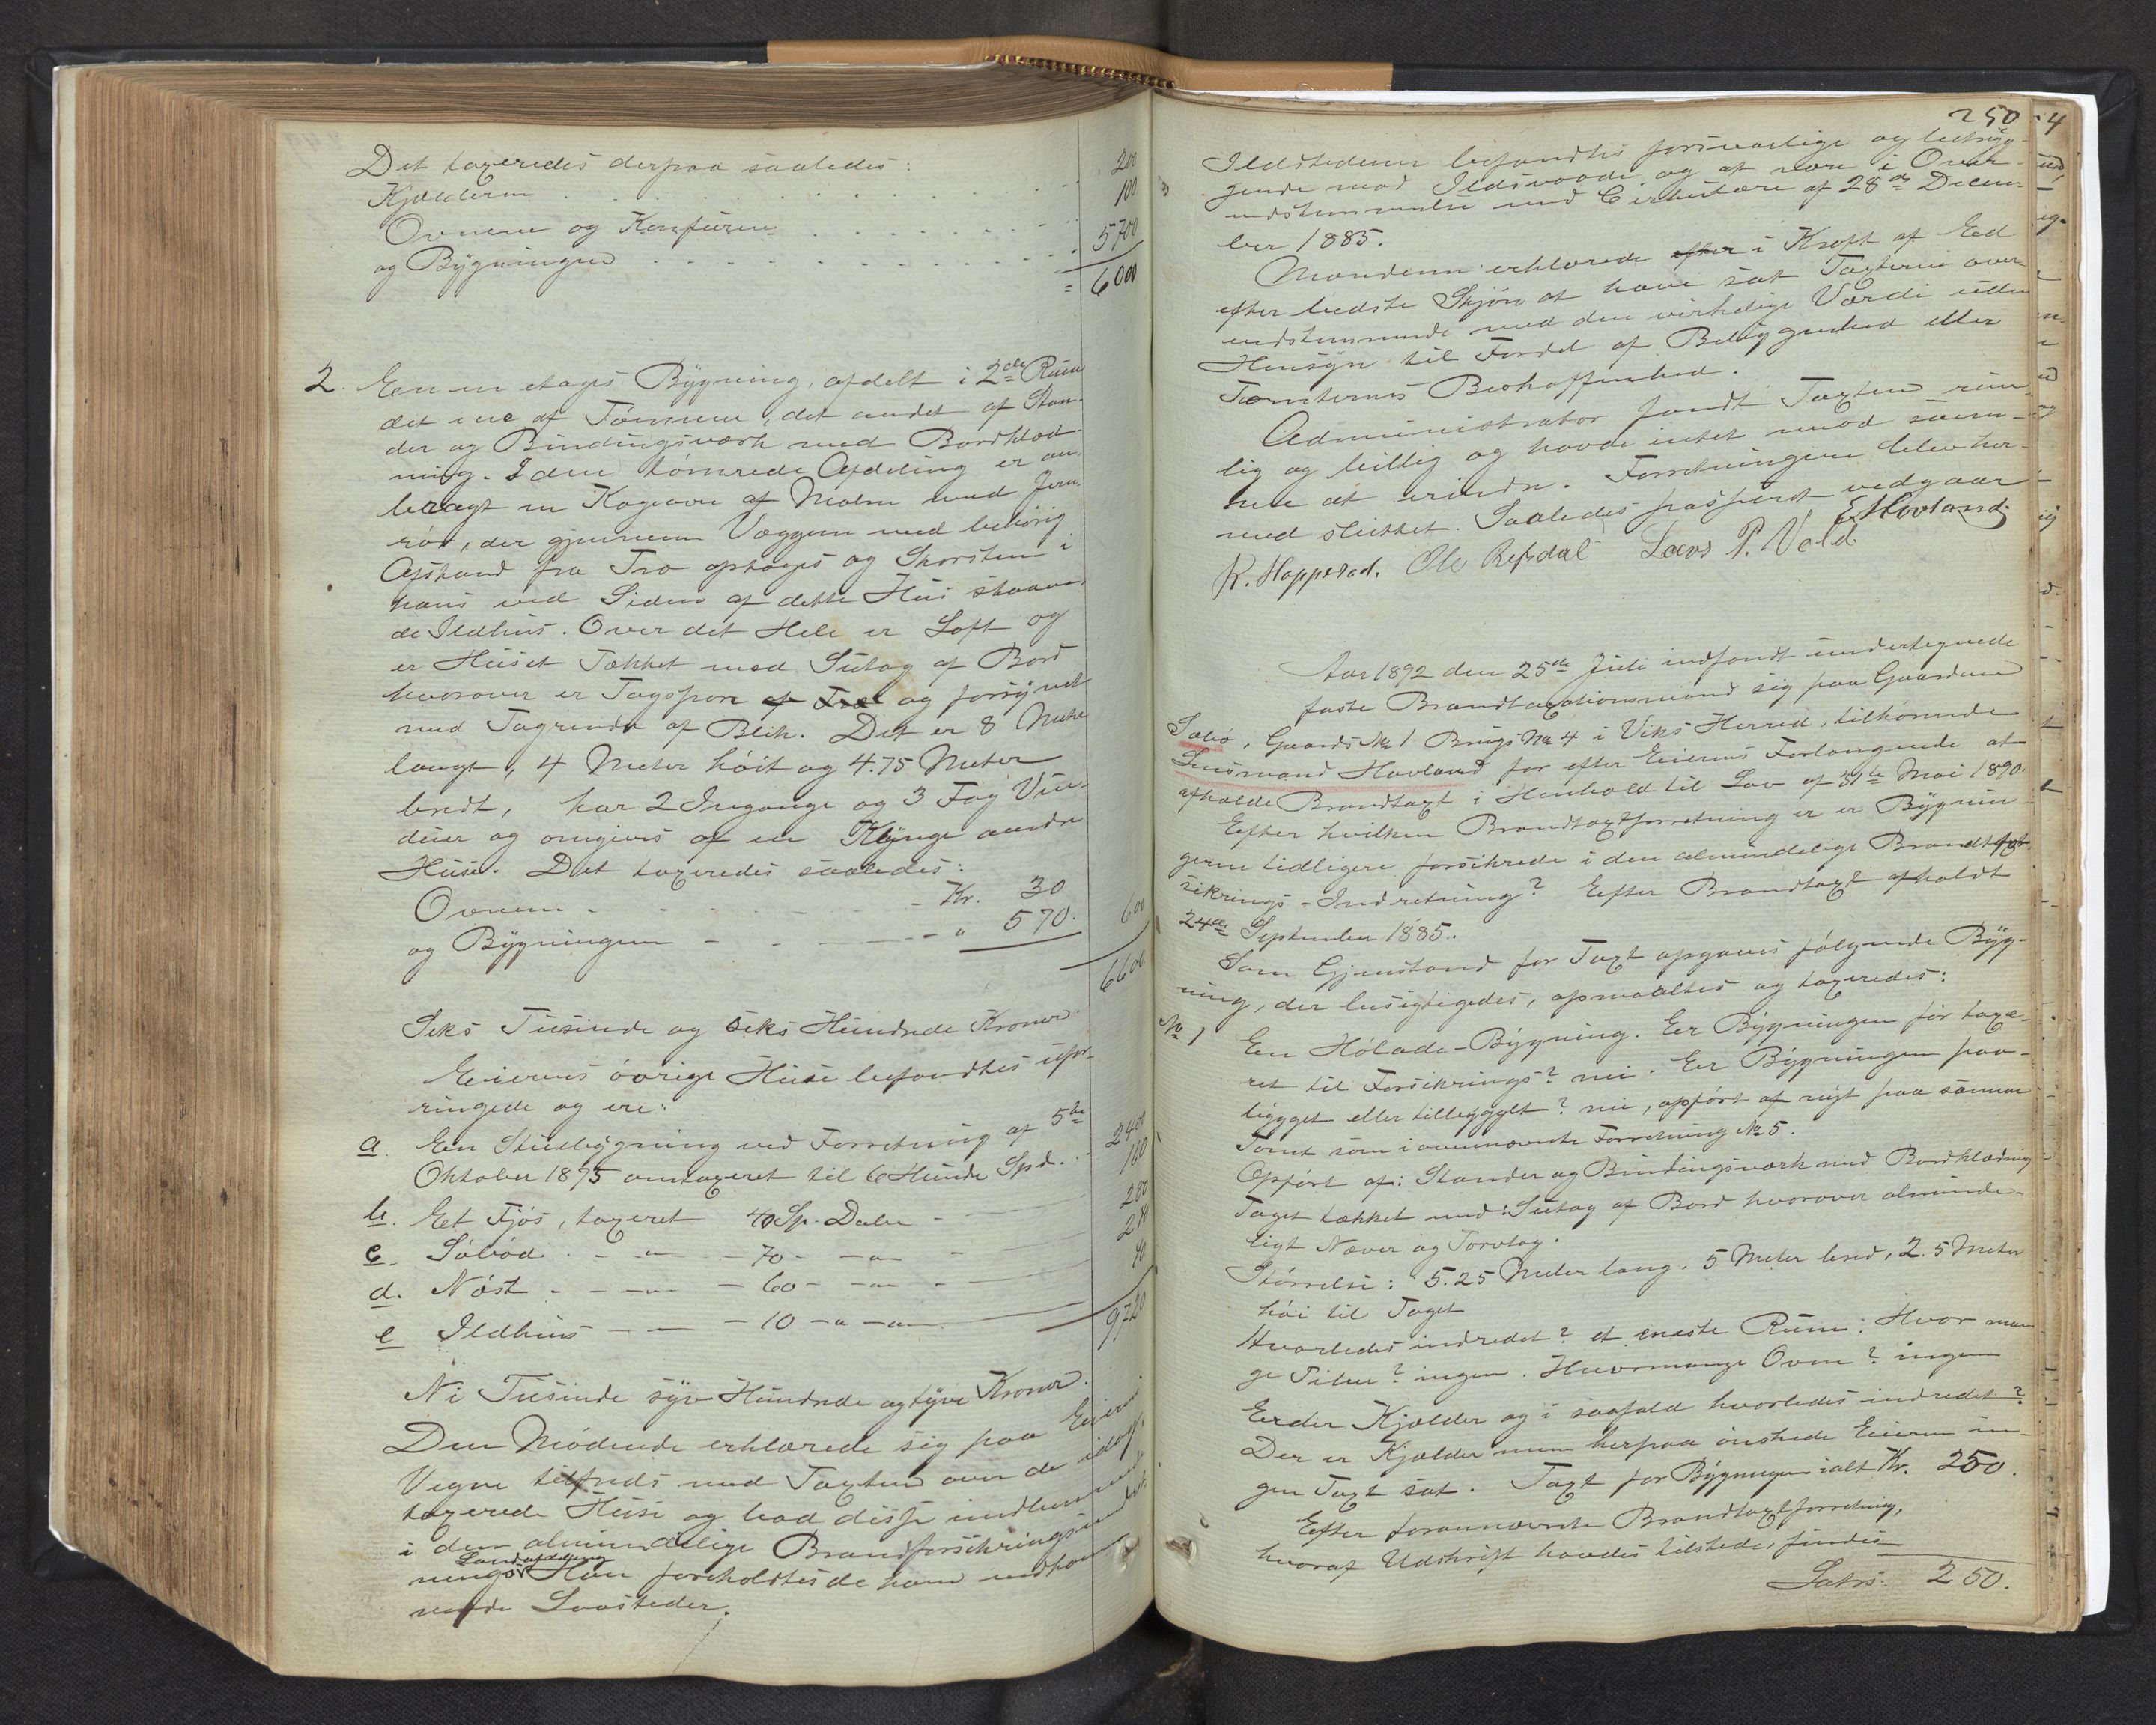 Det taxeredes derpaa saaledes:
Kjælderen . . . . . . . 200
Ovnene og Komfuren . . . . . . . 100
og Bygningen . . . . . . . 5700
= 6000
2. Een en etages Bygning, afdelt i 2de Rum
det ene af Tømmer, det andet af Stan-
der og Bindingsværk med Bordklæd-
ning. I den tømrede Afdeling er an-
bragt en Kogeovn af Malm med Jern-
rør, der gjennem Væggen med behørig
Afstand fra Træ optages og Skorsten i
hans ved Siden af dette Hus staaen-
de Ildhus. Over det Hele er Loft og
er Huset Tækket med Sutag af Bord
hvorover er Tagspon af Træ og forsynet
med Tagrender af Blik. Det er 8 Meter
langt, 4 Meter høit og 4.75 Meter
bredt, har 2 Indgange og 3 Fag Vin-
duer og omgives af en Klynge andre
Huse. Det taxeredes saaledes:
Ovnen - - - - Kr. 30
og Bygningen - - - - " 570. 600
6600
Seks Tusinde og seks Hundrede Kroner
Eierens øvrige Huse befandtes ufor-
ringede og ere:
a. Een Stuebygning ved Forretning af 5te
Oktober 1875 omtaxeret til 6 Hundr Spd. 2400
b. Eet Fjøs, taxeret 40 Sp. Daler - 160
c. Søbod. - - " - 70 - - " - 280
d. Nøst - - - " - 60 - - " - 240
e Ildhus - - - 10 - " - " - 40
9720
Ni Tusinde syv Hundrede og tyve Kroner.
Den Mødende erklærede sig paa Eierens
Vegne tilfreds med Taxten over de idag
taxerede Huse og bad disse indlemmede
i den almindelige Brandforsikringsindret-
nings Landafdeling. Han foreholdtes de ham vedkom-
mende Lovsteder.
250
Ildstederne befandtes forsvarlige og betryg-
gende mod Ildsvaade og at være i Over-
endstemmelse med Cirkulære af 28de Decem-
ber 1885.
Mændene erklærede efter i Kraft af Eed
efter bedste Skjøn at have sat Taxterne over-
endstemmende med den virkelige Værdi uden
Hensyn til Fordel af Beliggenhed eller
Tomternes Beskaffenhed.
Administrator fandt Taxten rime-
lig og billig og havde intet mod sam-
me at erindre. Forretningen blev her-
med sluttet. Saaledes passeret vedgaar
E. Hovland.
K. Hopperad. Ole Refsdal Lars P. Vold.
Aar 1892 den 25de Juli indfandt undertegnede
faste Brandtaxationsmænd sig paa Gaarden
Sæbø, Gaards No 1 Brugs No 4 i Viks Herred, tilhørende
Lensmand Hovland for efter Eierens Forlangende at
afholde Brandtaxt i Henhold til Lov af 31te Mai 1890.
Efter hvilken Brandtaxtforretning er er Bygnin-
gerne tidligere forsikrede i den almindelige Brandfor-
sikrings-Indretning? Efter Brandtaxt afholdt
24de September 1885.
Som Gjenstand for Taxt opgaves følgende Byg-
ning, der besigtigedes, opmaaltes og taxeredes:
No 1 Een Høladе-Bygning. Eer Bygningen før taxe-
ret til Forsikrings? nei. Eer Bygningen paa-
bygget eller tilbygget? nei, opført af nyt paa samme
Tomt som i ovennævnte Forretning No 5.
Opført af: Stander og Bindingsværk med Bordklædning
Taget tækket med: Sutag af Bord hvorover alminde-
ligt Næver og Torvtag.
Størrelse: 5.25 Meter lang, 5 Meter bred, 2.5 Meter
høi til Taget
Hvorledes indredet? et eneste Rum: Hvor man-
ge Piber? ingen. Hvormange Ovne? ingen
Eerder Kjælder og i saafald hvorledes indredet?
Der er Kjælder men herpaa ønskede Eieren in-
gen Taxt sat. Taxt for Bygningen ialt Kr. 250.
Efter forannævnte Brandtaxtforretning,
hvoraf Udskrift havdes tilstede, findes
Latus. 250.